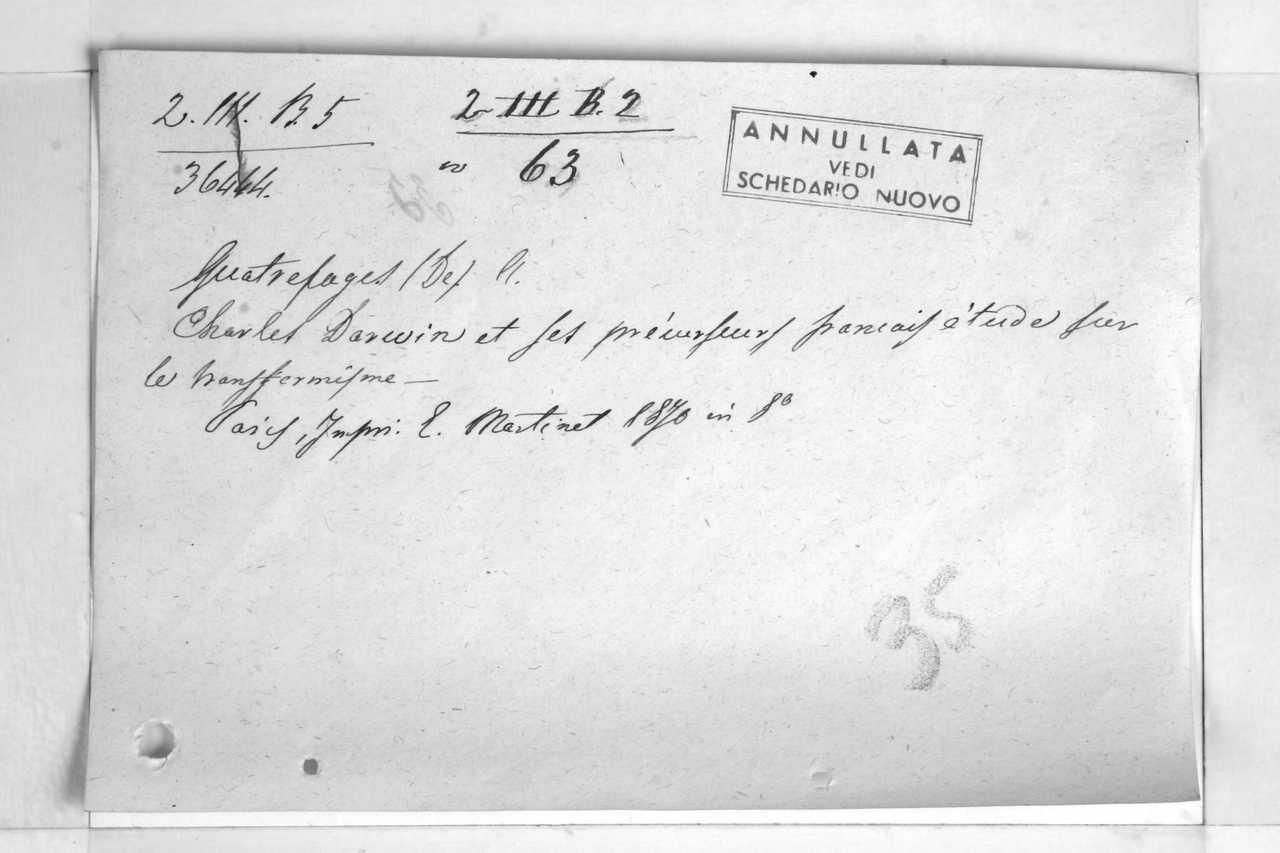 2. III. B. 5
36444.
2 III B. 2
63
ANNULLATA
VEDI
SCHEDARIO NUOVO
Quatrefages (De) A.
Charles Darwin et ses précurseurs francais étude sur
le transformisme —
Paris, Impri. E. Martinet 1870 in 8°
35